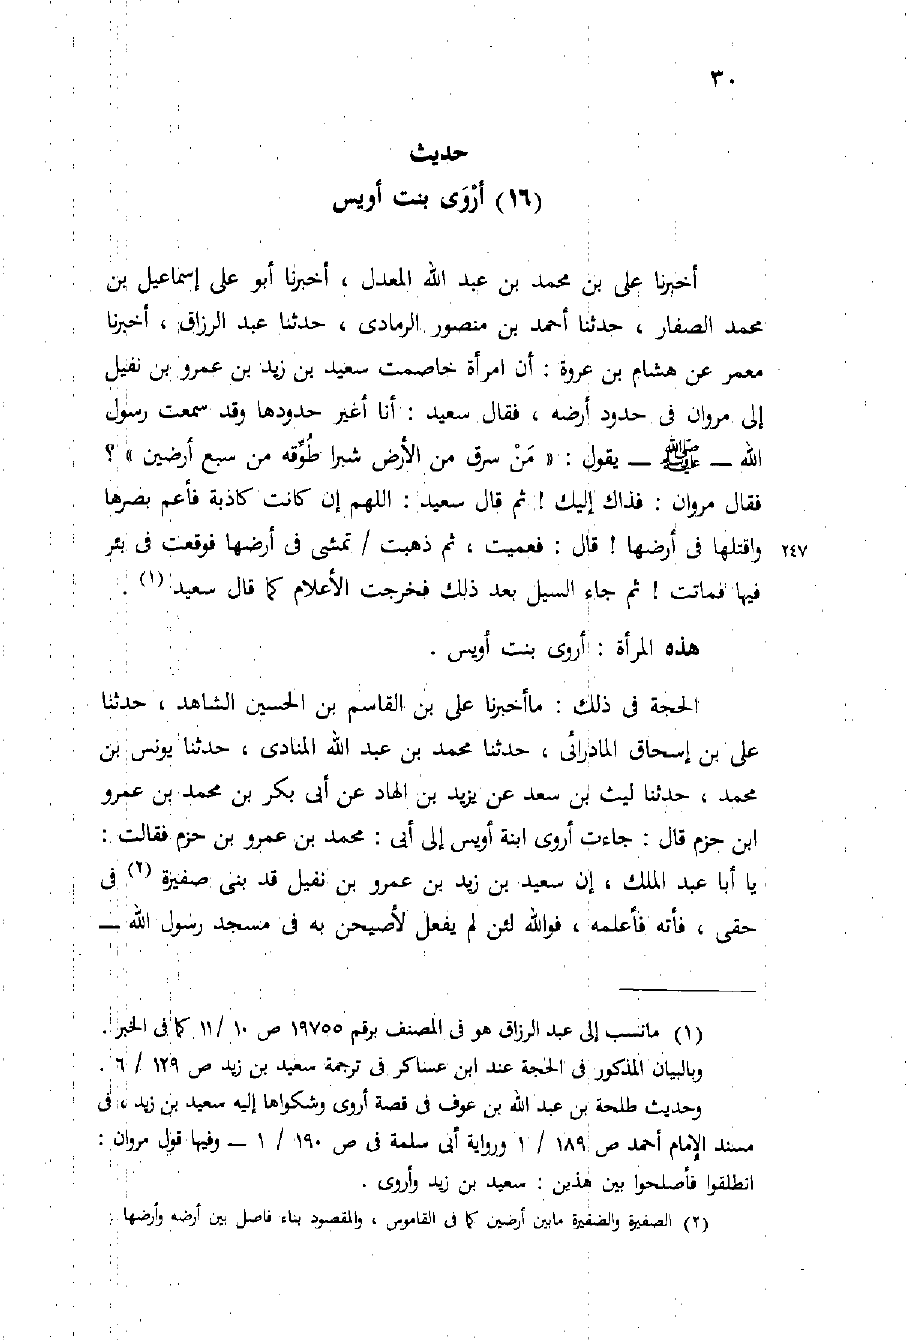 ٣٠
حديث
(١٦) أرْوَى بنت أويس
أخبرنا على بن محمد بن عبد الله المعدل ، أخبرنا أبو على إسماعيل بن
محمد الصفار ، حدثنا أحمد بن منصور الرمادى ، حدثنا عبد الرزاق ، أخبرنا
معمر عن هشام بن عروة : أن امرأة خاصمت سعيد بن زيد بن عمرو بن نفيل
إلى مروان فى حدود أرضه ، فقال سعيد : أنا أغير حدودها وقد سمعت رسول
الله — ﷺ — يقول : « مَنْ سرق من الأرض شبرا طُوِّقه من سبع أرضين » ؟
فقال مروان : فذاك إليك ! ثم قال سعيد : اللهم إن كانت كاذبة فأعم بصرها
واقتلها فى أرضها ! قال : فعميت ، ثم ذهبت / تمشى فى أرضها فوقعت فى بئر ٢٤٧
فيها فماتت ! ثم جاء السيل بعد ذلك فخرجت الأعلام كما قال سعيد (١) .
هذه المرأة : أروى بنت أويس .
الحجة فى ذلك : ماأخبرنا على بن القاسم بن الحسين الشاهد ، حدثنا
على بن إسحاق المادرائى ، حدثنا محمد بن عبد الله المنادى ، حدثنا يونس بن
محمد ، حدثنا ليث بن سعد عن يزيد بن الهاد عن أبى بكر بن محمد بن عمرو
ابن حزم قال : جاءت أروى ابنة أويس إلى أبى : محمد بن عمرو بن حزم فقالت :
يا أبا عبد الملك ، إن سعيد بن زيد بن عمرو بن نفيل قد بنى صفيرة (٢) فى
حقى ، فأته فأعلمه ، فوالله لئن لم يفعل لأصيحن به فى مسجد رسول الله —
(١) مانسب إلى عبد الرزاق هو فى المصنف برقم ١٩٧٥٥ ص ١٠ / ١١ كما فى الخبر .
وبالبيان المذكور فى الحجة عند ابن عساكر فى ترجمة سعيد بن زيد ص ١٢٩ / ٦ .
وحديث طلحة بن عبد الله بن عوف فى قصة أروى وشكواها إليه سعيد بن زيد ، فى
مسند الإمام أحمد ص ١٨٩ / ١ ورواية أبى سلمة فى ص ١٩٠ / ١ — وفيها قول مروان :
انطلقوا فأصلحوا بين هذين : سعيد بن زيد وأروى .
(٢) الصفيرة والضفيرة مابين أرضين كما فى القاموس ، والمقصود بناء فاصل بين أرضه وأرضها .